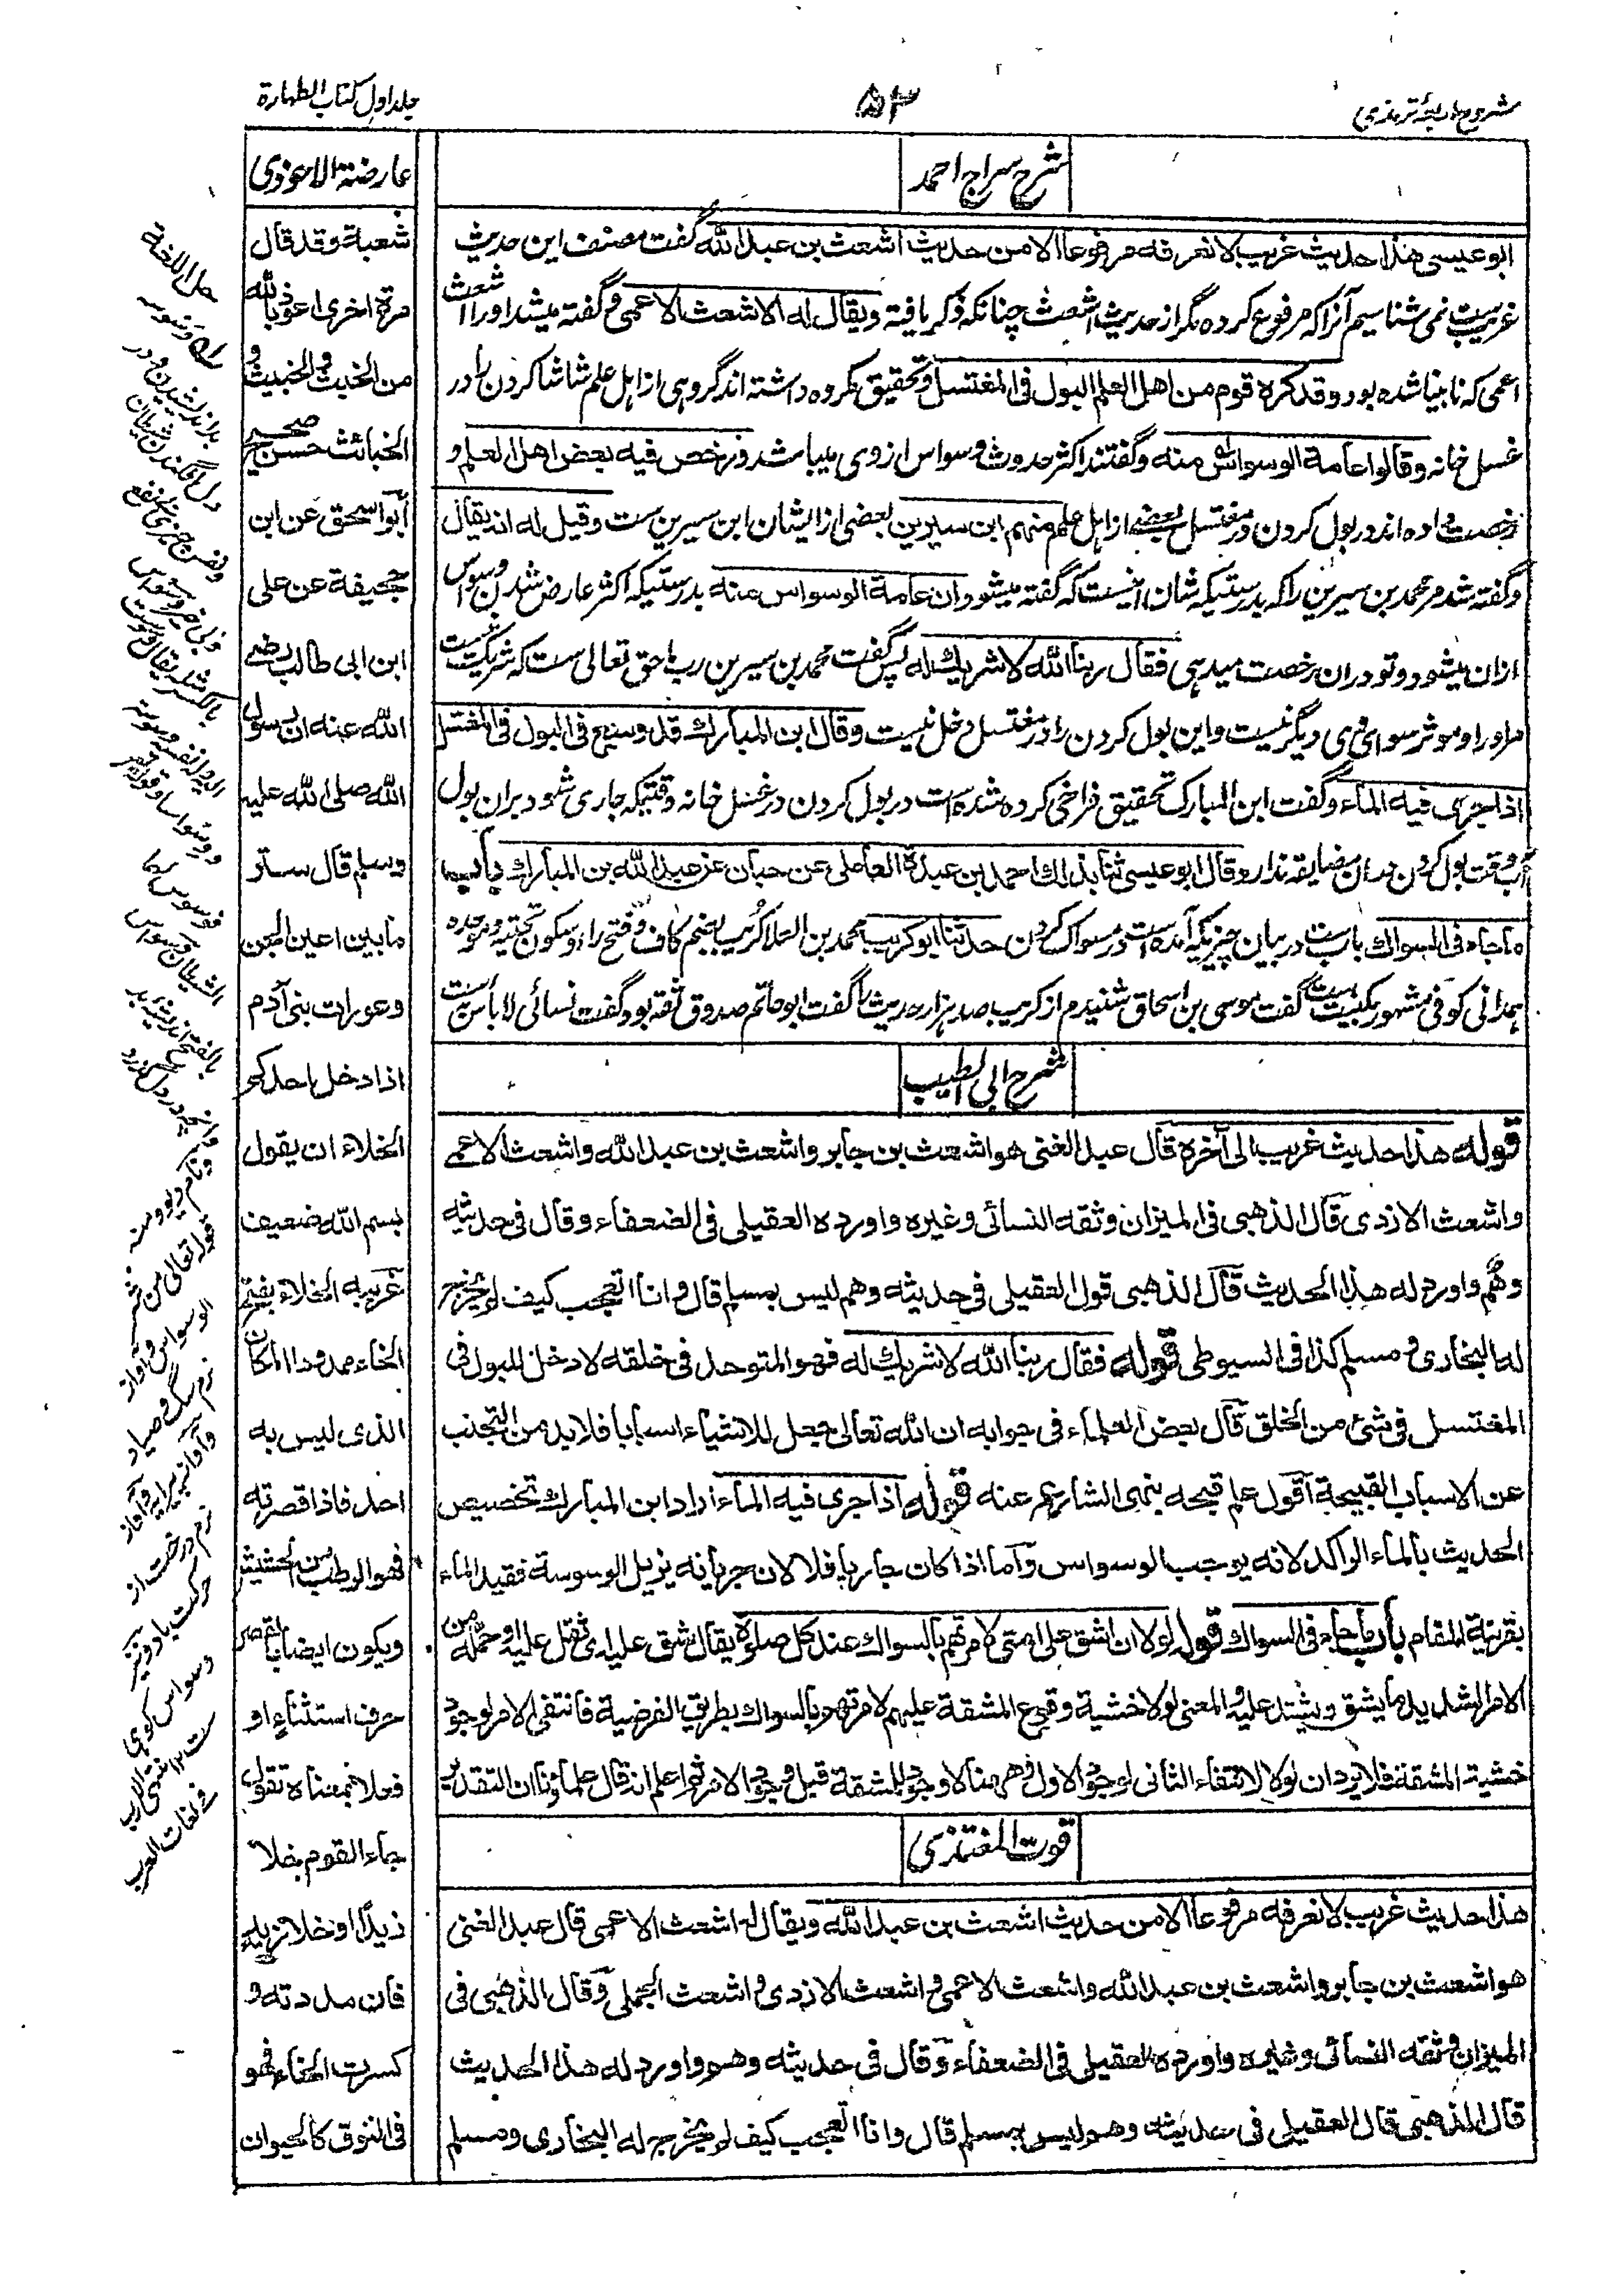 شروح اربعۂ ترمذی
۵۳
جلد اول کتاب الطهارة
شرح سراج احمد
ابو عیسی هذا حدیث غریب لا نعرفه مرفوعا الا من حدیث اشعث بن عبد الله گفت مصنف این حدیث
غریب ست نمی شناسیم آنرا که مرفوع کرده مگر از حدیث اشعث چنانکه ذکر یافته ویقال له الاشعث الاعمی و گفته میشد او را اشعث
اعمی که نابینا شده بود وقد کره قوم من اهل العلم البول فی المغتسل و تحقیق مکروه داشته اند گروهی از اهل علم شاشا کردن را در
غسل خانه وقالوا عامة الوسواس منه و گفتند اکثر حدوث وسواس از وی میباشد ورخص فیه بعض اهل العلم و
رخصت داده اند در بول کردن در مغتسل بعضے از اهل علم منهم ابن سیرین بعضی از ایشان ابن سیرین ست وقیل له انه یقال
و گفته شد مر محمد بن سیرین را که بدرستیکه شان اینست که گفته میشود ان عامة الوسواس منه بدرستیکه اکثر عارض شدن وسواس
ازان میشود و تو دران رخصت میدهی فقال ربنا الله لا شریك له پس گفت محمد بن سیرین رب ما حق تعالی ست که شریک نیست
مر او را و موثر سوای وی دیگر نیست و این بول کردن را در مغتسل دخل نیست وقال ابن المبارك قد وسع فی البول فی المغتسل
اذا جری فیه الماء و گفت ابن المبارک تحقیق فراخی کرده شده است در بول کردن در غسل خانه وقتیکه جاری شود بران بول
آب وقت بول کردن دران مضایقه ندارد وقال ابو عیسی ثنا بذلك احمد بن عبدة الآملی عن حبان عن عبد الله بن المبارك باب
ما جاء فی السواك باب ست در بیان چیزیکه آمده است در مسواک کردن حدثنا ابو کریب محمد بن العلا کریب بضم کاف و فتح راء و سکون تحتیه و موحده
همدانی کوفی مشهور بکنیت ست گفت موسی بن اسحاق شنیدم از کریب صد هزار حدیث را گفت ابو حاتم صدوق ثقه بود گفت نسائی لا بأس ست
شرح ابی الطیب
قوله هذا حدیث غریب الی آخره قال عبد الغنی هو اشعث بن جابر واشعث بن عبد الله واشعث الاعمی
واشعث الازدی قال الذهبی فی المیزان وثقه النسائی وغیره واورده العقیلی فی الضعفاء وقال فی حدیثه
وهم واورد له هذا الحدیث قال الذهبی قول العقیلی فی حدیثه وهم لیس بمسلم قال وانا اتعجب کیف لم یخرج
له البخاری ومسلم کذا فی السیوطی قوله فقال ربنا الله لا شریك له فهو المتوحد فی خلقه لا دخل للبول فی
المغتسل فی شئ من الخلق قال بعض العلماء فی جوابه ان الله تعالی جعل للاشیاء اسبابا فلا بد من التجنب
عن الاسباب القبیحة اقول علم قبحه بنهی الشارع عنه قوله اذا جری فیه الماء اراد ابن المبارك تخصیص
الحدیث بالماء الراکد لانه یوجب الوسواس واما اذا کان جاریا فلا لان جریانه یزیل الوسوسة فقید الماء
بقرینة المقام باب ما جاء فی السواك قوله لولا ان اشق علی امتی لامرتهم بالسواك عند کل صلوة یقال شق علیه ای ثقل علیه او حمله من
الامر الشدید ما یشق ویشتد علیه والمعنی لولا خشیة وقوع المشقة علیهم لامرتهم بالسواك بطریق الفرضیة فانتفی الامر لوجود
خشیة المشقة فلا یرد ان لولا لانتفاء الثانی لوجود الاول وههنا لا وجود للمشقة قبل وجود الامر ثم اعلم انه قال علماؤنا ان التقدیر
قوت المغتذی
هذا حدیث غریب لا نعرفه مرفوعا الا من حدیث اشعث بن عبد الله ویقال له اشعث الاعمی قال عبد الغنی
هو اشعث بن جابر واشعث بن عبد الله واشعث الاعمی واشعث الازدی واشعث الحملی وقال الذهبی فی
المیزان وثقه النسائی وغیره واورده العقیلی فی الضعفاء وقال فی حدیثه وهم واورد له هذا الحدیث
قال الذهبی قال العقیلی فی حدیثه وهم لیس بمسلم قال وانا اتعجب کیف لم یخرج له البخاری ومسلم
عارضة الاحوذی
شعبة وقد قال
مرة اخری اعوذ بالله
من الخبث والخبیث و
الخبائث حسن صحیح
ابو اسحق عن ابن
جحیفة عن علی
ابن ابی طالب رضی
الله عنه ان رسول
الله صلی الله علیه
وسلم قال ستر
ما بین اعین الجن
وعورات بنی آدم
اذا دخل احدکم
الخلاء ان یقول
بسم الله ضعیف
غریبه الخلاء بفتح
الخاء ممدودا المکان
الذی لیس به
احد فاذا قصرته
فهو الرطب من الحشیش
ویکون ایضا بالقصر
حرف استثناء او
فعلا بمعناه تقول
جاء القوم خلا
زیدا او خلا زید
فان مددته و
کسرت الخاء فهو
فی النوق کالحیوان
حل اللغة